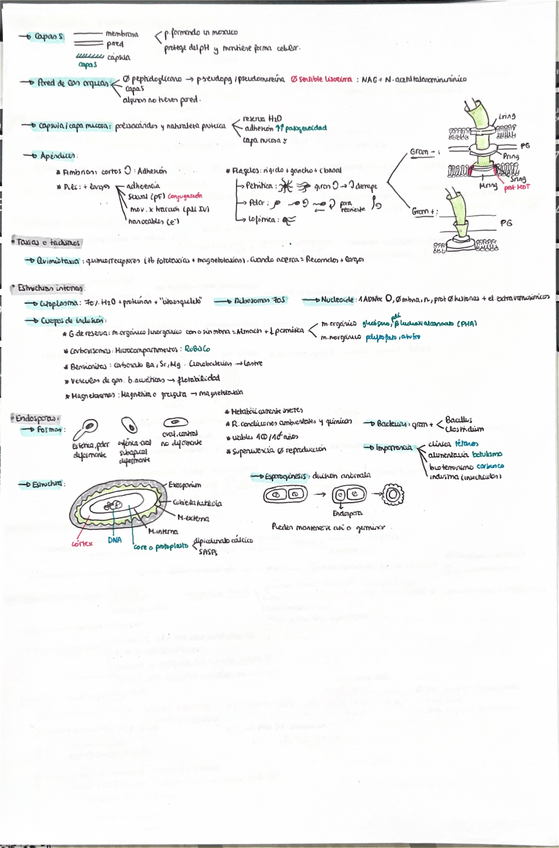 → Capas S: membrana
pared
cápsula
capas
p. formando un mosaico
protege del pH y mantiene forma celular.
→ Pared de las arqueas
∅ peptidoglicano → pseudopg / pseudomureína ∅ sensible lisozima : NAG + N-acetiltalosaminurónico
capas
algunos no tienen pared.
→ Cápsula / capa mucosa: polisacáridos y naturaleza proteica
reserva H2O
adhesión ↑↑ patogenicidad
capa mucosa
→ Apéndices:
* Fimbrias: cortos : Adhesión
* Pili: + largos
adherencia
sexual (pF) conjugación
mov. x tracción (pili IV)
nanocables (e⁻)
* Flagelos: rígido + gancho + c basal
Perítrica:
Polar:
Lofótrica:
Gram - :
Lring
PG
Pring
Sring
Mring
prot MOT
Gram + :
PG
* Taxias o tactismos
→ Quimiotaxia: quimiorreceptores (tb fototaxias + magnetotaxias). Cuando acerca = Recorridos + largos
* Estructuras internas
→ Citoplasma: 70% H2O + proteínas +
→ Ribosomas 70S
→ Nucleoide: 1 ADNbc
→ Cuerpos de inclusión:
* G. de reserva: m. orgánico / inorgánico con o sin mbna = Almacén + ↓ p. osmótica
m. orgánico glucógeno, (PHA)
m. inorgánico polifosfato, azufre
* Carboxisomas: Microcompartimentos: RuBisCo
* Bentonitas: carbonato Ba, Sr, Mg. Cianobacterias → Lastre
* Vesículas de gas. b. acuáticas → flotabilidad
* Magnetosomas: Magnetita o greigita → magnetotaxia
* Endosporas:
→ Formas:
Esférica, polar
deformante
esférica-oval
subapical
deformante
oval, central
no deformante
* Metabólicamente inertes
* R. condiciones ambientales y químicas
* Supervivencia ∅ reproducción
→ Bacterias: gram +
Bacillus
Clostridium
→ Importancia:
clínica tétanos
alimentaria botulismo
bioterrorismo carbunco
industria (insecticidas)
→ Estructura:
Exosporium
Cubierta
M. externa
M. interna
cortex
DNA
Core o protoplasto
dipicolinato cálcico
SASPs
→ Esporogénesis: división anómala
Endospora
Pueden mantenerse así o germinar